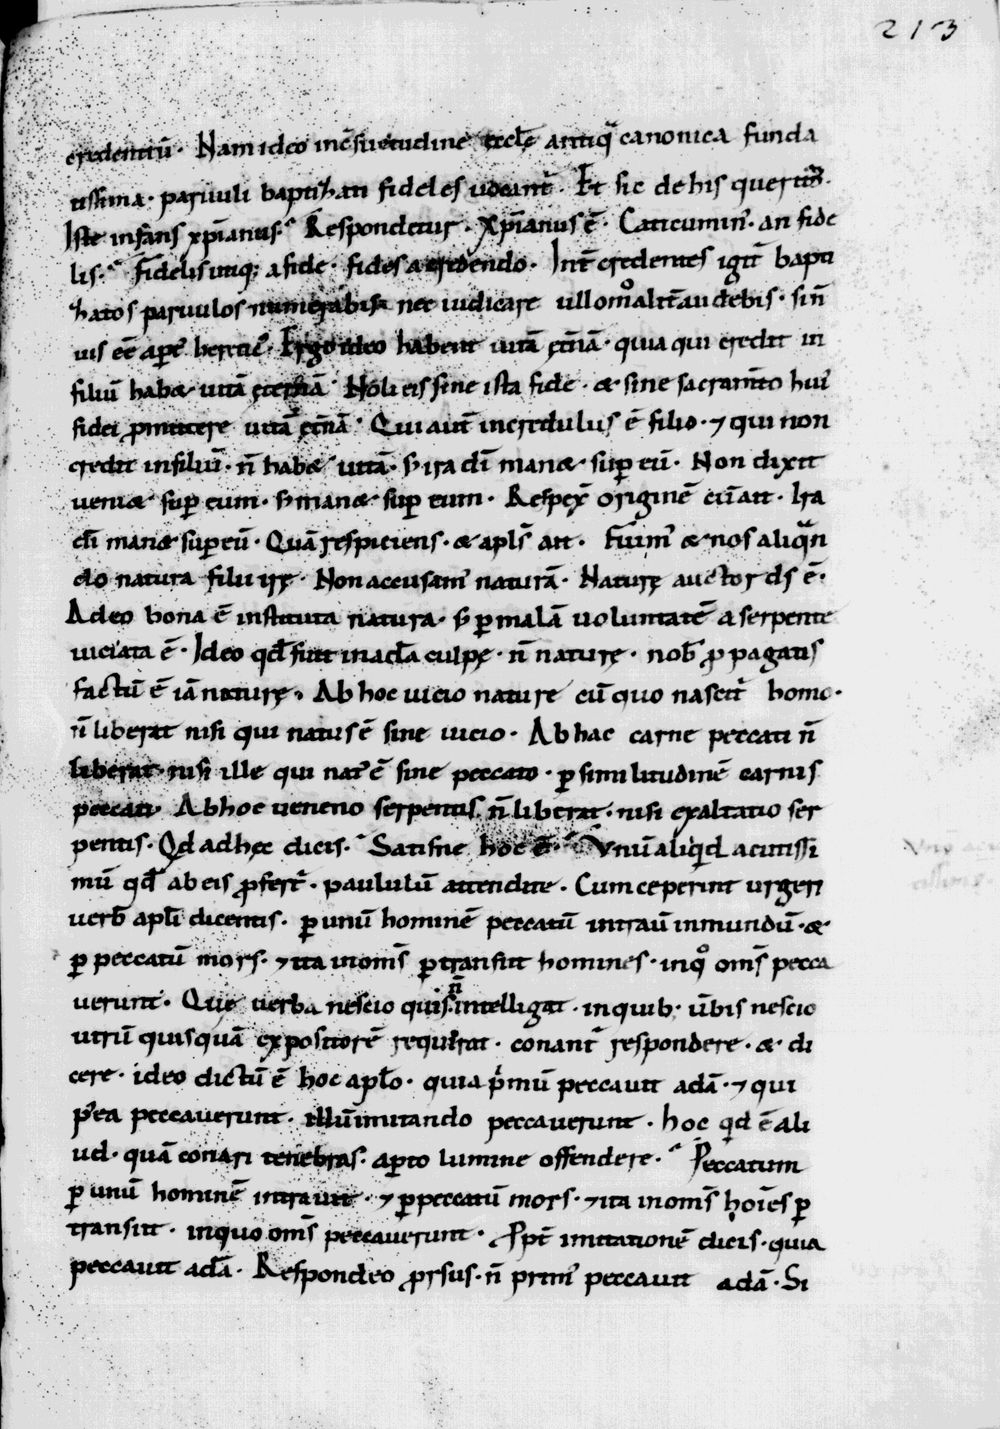 213
credentiū · Nam ideo inc̄suetudine eccl̄e antiq̄ canonica funda
tissima · paruuli baptizati fideles uocant̄ · Et sic de his querim᷒ ·
Iste infans xp̄ianus? Respondetur · Xp̄ianus ē · Caticumin᷒ · an fide
lis? Fidelis utiq; a fide · fides a credendo · Int̄ credentes igit̄ bapti
zatos paruulos numerabis · nec iudicare ullo mᵒ alit̄ audebis · si n̄
uis eē ap̄t᷒ heretic᷒ · Ergo ideo habent uitā ęt̄nā · quia qui credit in
filiū habet uitā ęternā · Noli eis sine ista fide · & sine sacram̄to hui᷒
fidei ꝓmittere uitā ęt̄nā · Qui aut̄ incredulus ē filio · ⁊ qui non
credit in filiū · n̄ habet uitā · s; ira dī manet sup̄ eū · Non dixit
ueniet sup̄ eum · s; manet sup̄ eum · Respex̄ originē cū ait · Ira
dī manet sup̄ eū · Quā respiciens · & apl̄s ait · Fuim᷒ & nos aliqn̄
do natura filii irę · Non accusam᷒ naturā · Naturę auctor ds̄ ē ·
Adeo bona ē instituta natura · s; ꝑ malā uoluntatē a serpente
uiciata ē · Ideo qd̄ fuit in adā culpę · n̄ naturę · nob̄ ꝓpagatis
factū ē iā naturę · Ab hoc uicio nature cū quo nascit̄ homo ·
n̄ liberat nisi qui natus ē sine uicio · Ab hac carne peccati n̄
liberat nisi ille qui nat᷒ ē sine peccato · ꝑ similitudinē carnis
peccati · Ab hoc ueneno serpentis n̄ liberat · nisi exaltatio ser
pentis · Qd ad hęc dicis · Satisne hoc ē? Vnū aliq̇d acutissi
mū qd̄ ab eis ꝓfert̄ · paululū attendite · Cum ceperint urgeri
uerb̄ apl̄i dicentis · ꝑ unū hominē peccatū intrau̅ in mundū · &
ꝑ peccatū mors · ⁊ ita in om̄s ꝑtransiit homines · in qᵒ om̄s pecca
uerunt · Que uerba nescio quis n̄ intelligat · in quib; ūbis nescio
utrū quisquā expositorē requirat · conant̄ respondere · & di
cere · ideo dictū ē hoc apl̄o · quia ṗmū peccauit adā · ⁊ qui
p᷒ea peccauerunt · illū imitando peccauerunt · hoc q̇d ē ali
ud · quā conari tenebras · aꝑto lumine offendere · Peccatum
ꝑ unū hominē intrauit · ⁊ ꝑ peccatū mors · ⁊ ita in om̄s hoīes ꝑ
transiit · in quo om̄s peccauerunt · Ꝓpt̄ imitationē dicis · quia
peccauit adā · Respondeo ꝓrsus · n̄ prim᷒ peccauit adā · Si